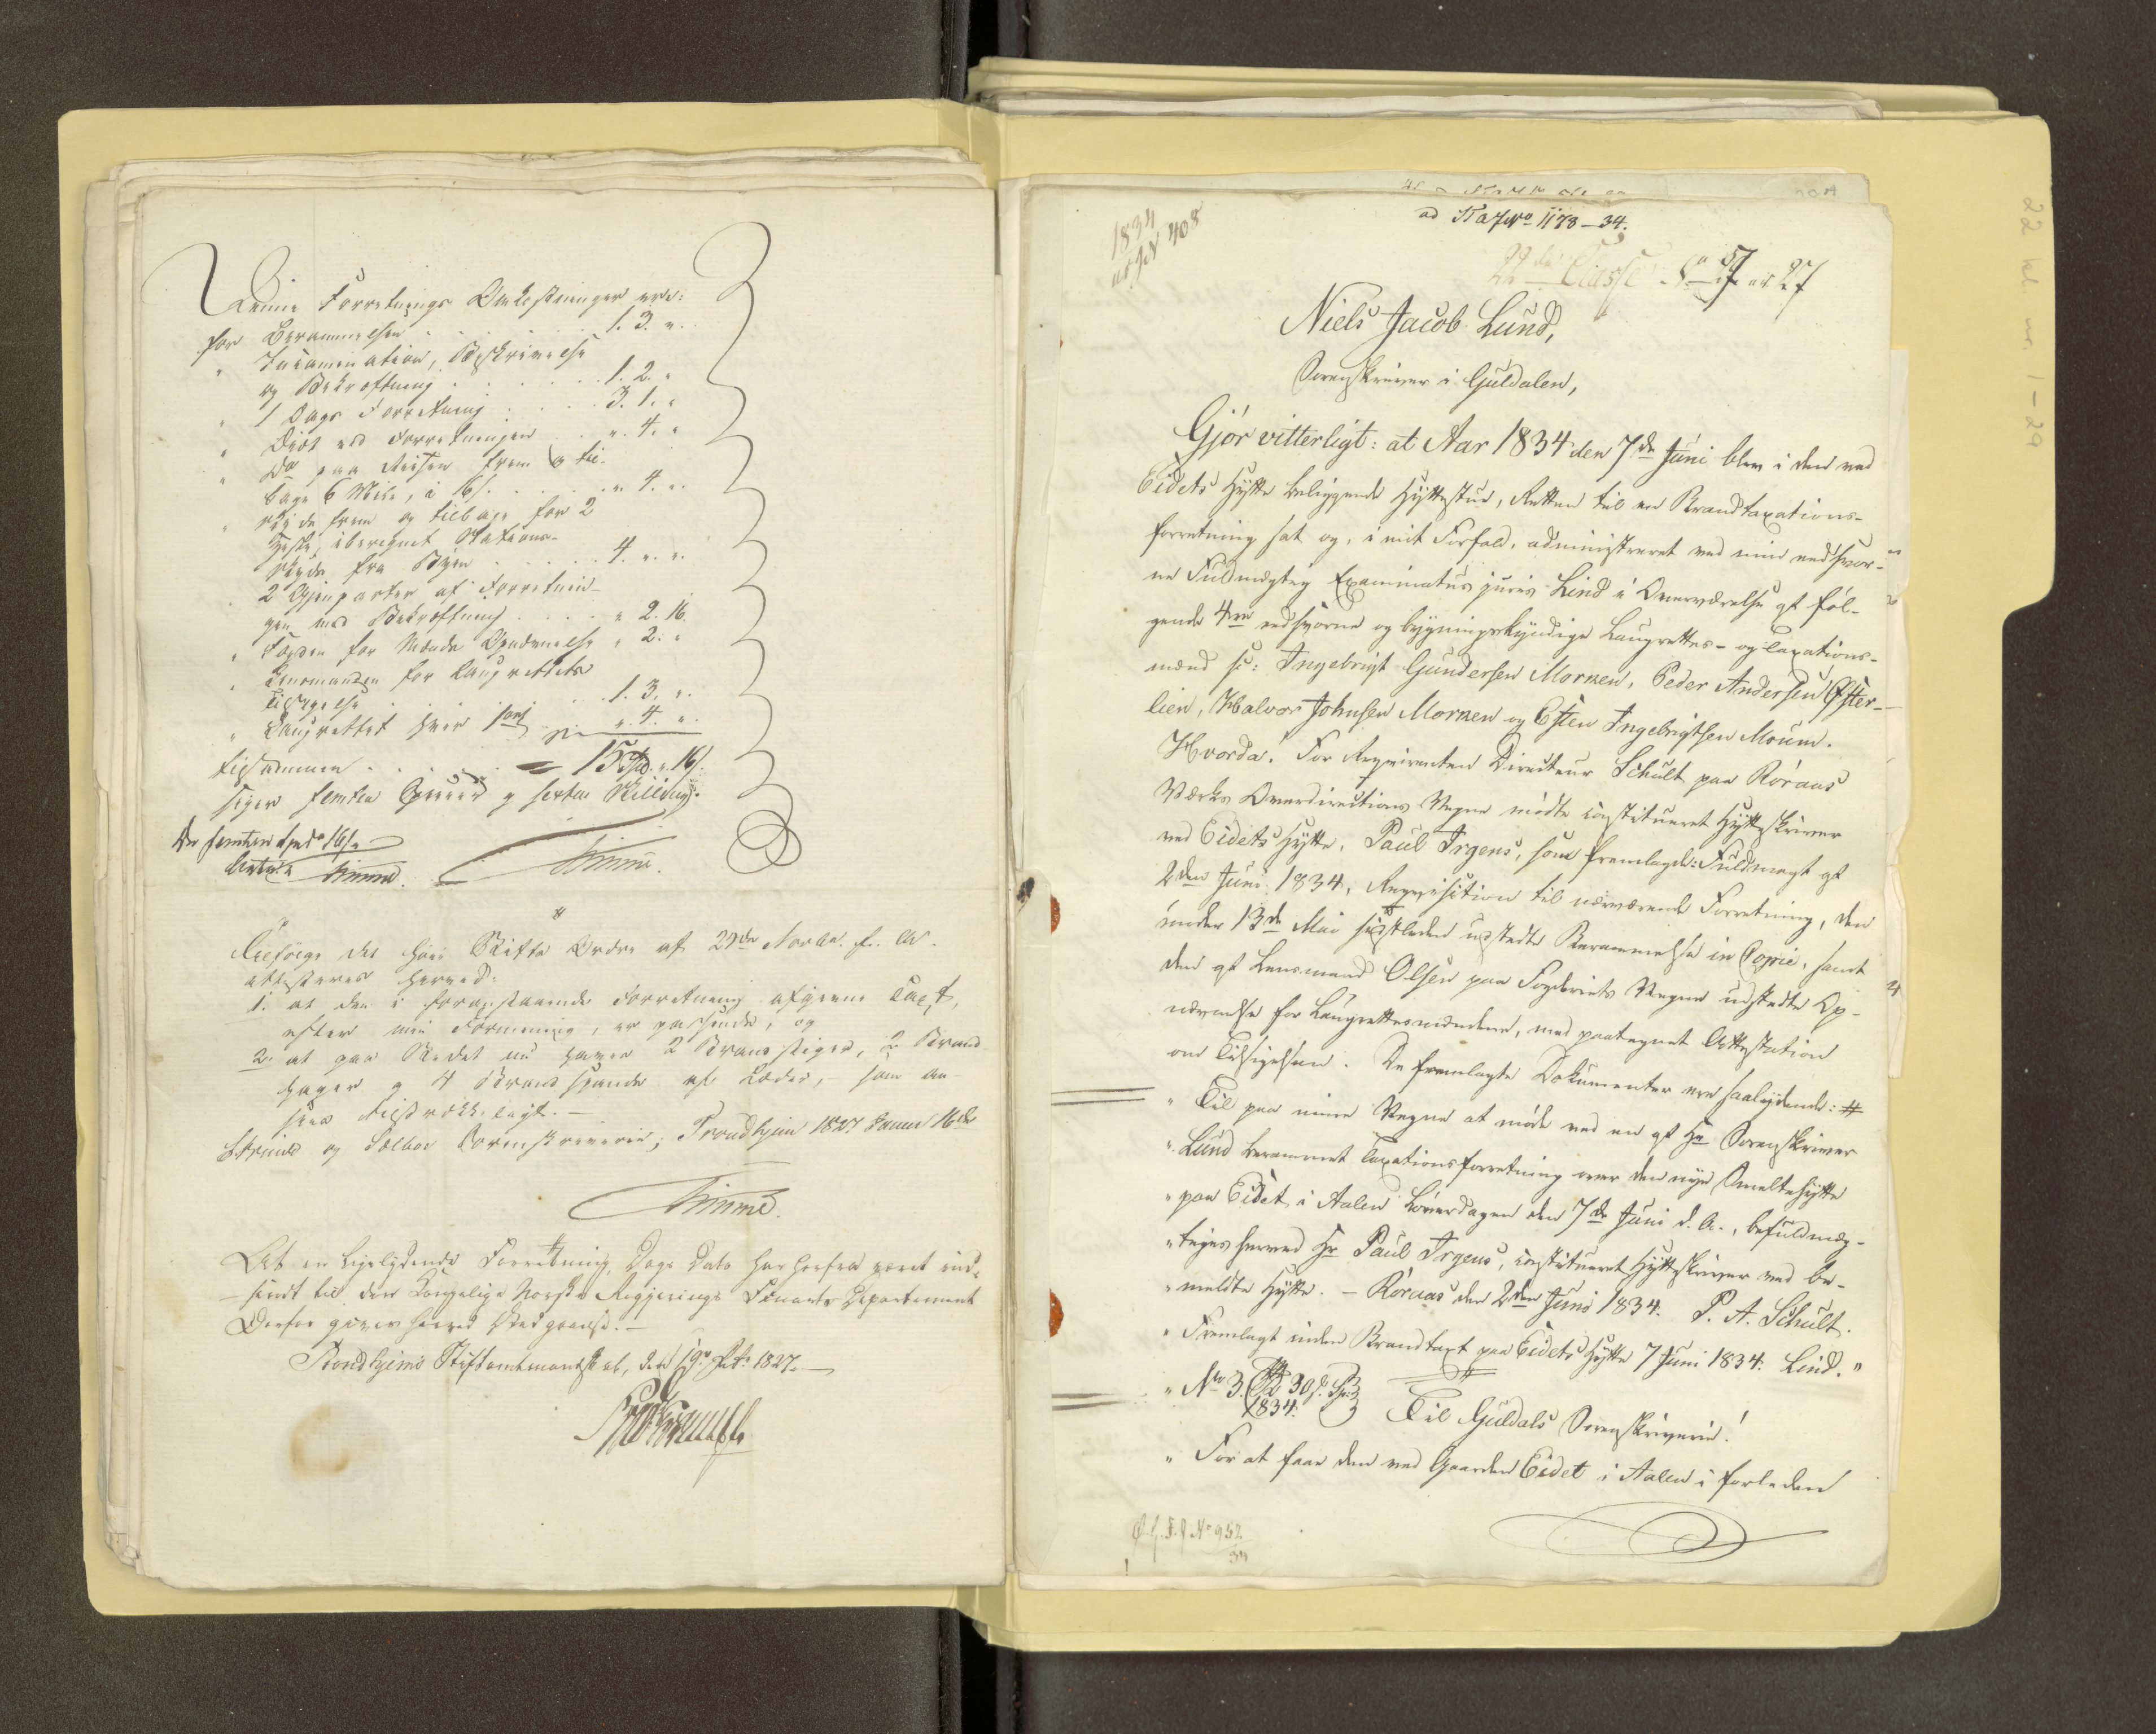 Denne Forretnings Omkostninger ere:
for Berammelsen . . . 1. 3. "
" Examination, Beskrivelse
og Bekræftning . . . 1. 2. "
" 1 Dags Forretning . . . 3. 1. "
" Diæt ved Forretningen . . " 4. "
" Do paa Reisen frem & til-
bage 6 Mile, à 16 s. . . . " 4. "
" Skyds frem og tilbage for 2
Heste, iberegnet Stations-
Skyds fra Byen . . . 4. " "
2 Gjenparter af Forretnin-
gen med Bekræftning . . . " 2. 16.
" Fogden for Mænds Opnævnelse " 2. "
" Lensmanden for Laugrettets
Tilsigelse . . . 1. 3. "
" Laugrettet hver 1 ort . . " 4. "
tilsammen . . . 15 Spd. " 16 s.
siger femten Species og sexten Skilling.
Er femten Spd. 16 s.
betalt
Ifølge det høie Stifts Ordre af 29de Novbr. f. A.
attesteres herved:
1. at den i foranstaaende Forretning afgivne Taxt,
efter min Formening, er passende, og
2. at paa Stedet nu haves 2 Brandstiger, 2 Brand
hager og 4 Brandspande af Læder, – som an-
sees tilstrækkeligt. –
Strinde og Selboe Sorenskriverie, Trondhjem 1827 Januar 16de
At en ligelydende Forretning Dags Dato har herfra været ind-
sendt til den Kongelige Norske Regjerings Finants Departement
Derfor gives herved Bevidnelse. –
Trondhjems Stiftamtmandskab, den 19de Febr. 1827. –
1834
408
ad No 1178 – 34.
22de Classe No 57 27
Niels Jacob Lund,
Sorenskriver i Guldalen,
Gjør vitterligt: at Aar 1834 den 7de Juni blev i den ved
Eidets Hytte beliggende Hyttestue, Retten til en Brandtaxations-
forretning sat og, i mit Forfald, administreret ved min edsvor-
ne Fuldmægtig Examinatus juris Lind i Overværelse af føl-
gende 4re edsvorne og bygningskyndige Laugrettes- og Taxations-
mænd sc: Ingebrigt Gundersen Morken, Peder Andersen Øster-
lien, Halvor Johnsen Morken og Esten Ingebrigtsen Moum.
Hvorda! For Reqvirenten Directeur Schult paa Røraas
Værks Overdirections Vegne mødte constitueret Hytteskriver
ved Eidets Hytte, Paul Irgens, som fremlagde: Fuldmagt af
2den Juni 1834, Reqvisition til nærværende Forretning, den
under 13de Mai sidstleden udstedte Berammelse in Copie, samt
den af Lensmand Olsen paa Fogderiets Vegne udstedte Op-
nævnelse for Laugrettesmændene, med paategnet Attestation
om Tilsigelsen. De fremlagte Dokumenter ere saalydende: #
" Til paa mine Vegne at møde ved en af Hr Sorenskriver
" Lund berammet Taxationsforretning over den nye Smeltehytte
" paa Eidet i Aalen Løverdagen den 7de Juni d. A., befuldmæg-
" tiges herved Hr Paul Irgens, constitueret Hytteskriver ved be-
" meldte Hytte. – Røraas den 2den Juni 1834. P. A. Schult.
" Fremlagt under Brandtaxt paa Eidets Hytte 7 Juni 1834. Lind."
" No 3. 30 s. Sp:
1834. Til Guldals Sorenskriverie!
" For at faae den ved Gaarden Eidet i Aalen i forleden
No 952
34
22 kl nr 1-29